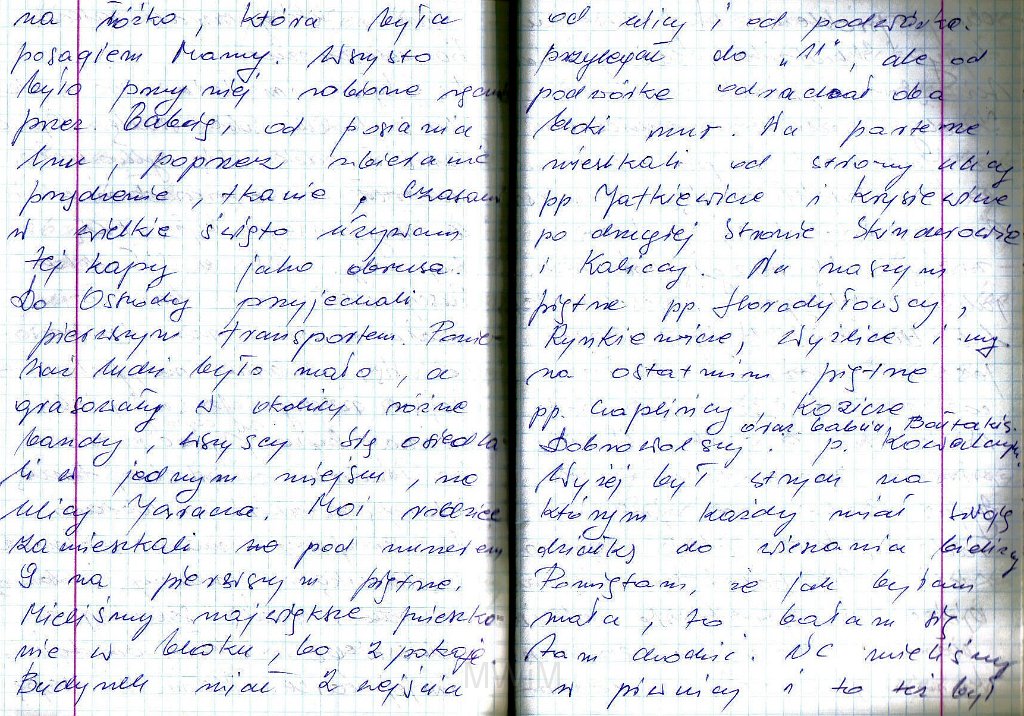 na łóżko, która była
posagiem Mamy. Wszysto
było przy niej robione ręcz
przez Babcię, od posiania
lnu, poprzez zbieranie
przędzenie, tkanie. Czasami
w wielkie święto używam
tej kapy jako obrusa.
Do Ostródy przyjechali
pierwszym transportem. Ponie-
waż ludzi było mało, a
grasowały w okolicy różne
bandy, wszyscy się osiedla-
li w jednym miejscu, na
ulicy Jaracza. Moi rodzice
zamieszkali no pod numerem
9 na pierwszym piętrze.
Mieliśmy największe mieszka-
nie w bloku, bo 2 pokoje
Budynek miał 2 wejścia
od ulicy i od podwórka.
przylegał do "11", ale od
podwórka odradzał oba
bloki mur. Na parterze
mieszkali od strony ulicy
pp Jatkiewicze i Krysiewicze
po drugiej stronie Skinderowie
i Kaliccy. Na naszym
piętrze pp. Horodyłouscy,
Rynkiewicze, Wyżlice i my.
na ostatnim piętrze
pp. Czaplińscy, Kozicze
oraz babcia Bołtakis.
Dobrowolscy. p. Kowalczyk.
Wyżej był strych na
którym każdy miał swoją
działkę do wieszania bielizny
Pamiętam, że jak byłam
mała, to bałam się
tam chodzić. WC mieliśmy
w piwnicy i to też był
MWM